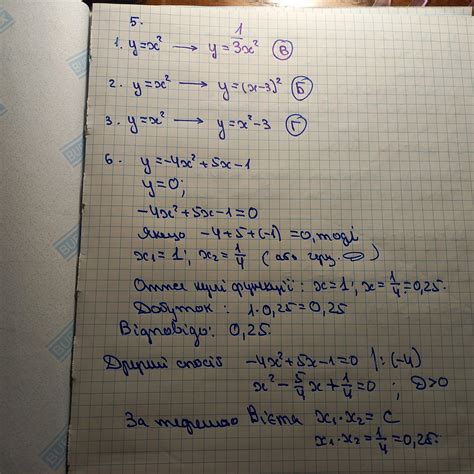 5.
1. y=x² → y=1/3x² (В)
2. y=x² → y=(x-3)² (Б)
3. y=x² → y=x²-3 (Г)
6. y=-4x²+5x-1
y=0;
-4x²+5x-1=0
Якщо -4+5+(-1)=0, тоді
x₁=1; x₂=1/4 (або
Отже нулі функції: x=1; x=1/4=0,25.
Добуток: 1·0,25=0,25
Відповідь: 0,25
Другий спосіб -4x²+5x-1=0 |:(-4)
x²-5/4x+1/4=0; D>0
За теремою Вієта x₁·x₂=c
x₁·x₂=1/4=0,25